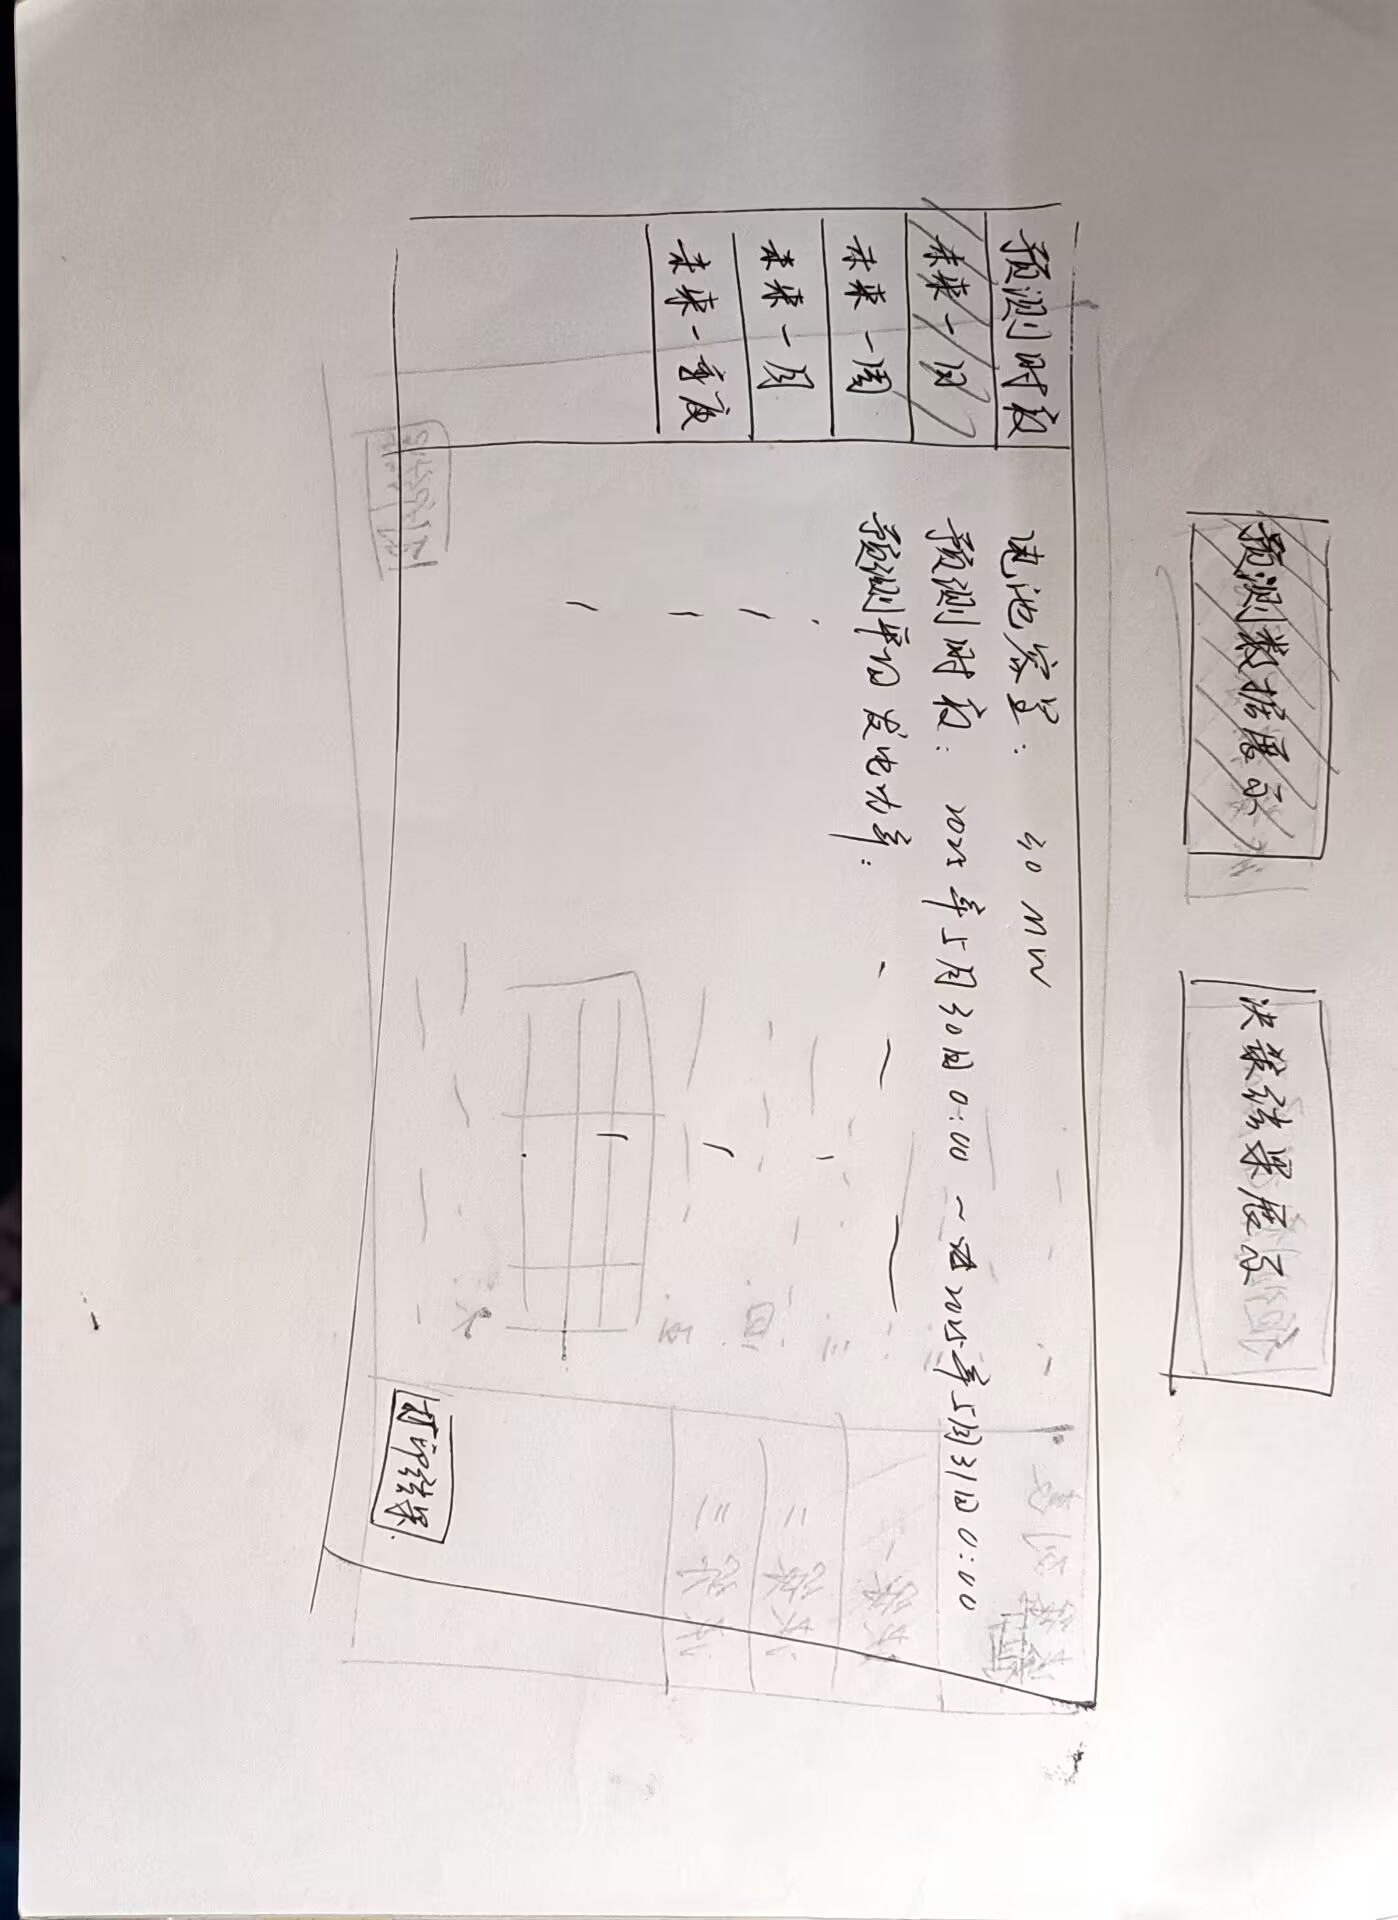 预测数据展示
决策结果展示
预测时夜
未来一日
未来一周
未来一月
未来一季度
电池容量: 30 MW
预测时夜: 2025年5月30日0:00 ~ 2025年5月31日0:00
预测平均发电功率:
打印结果